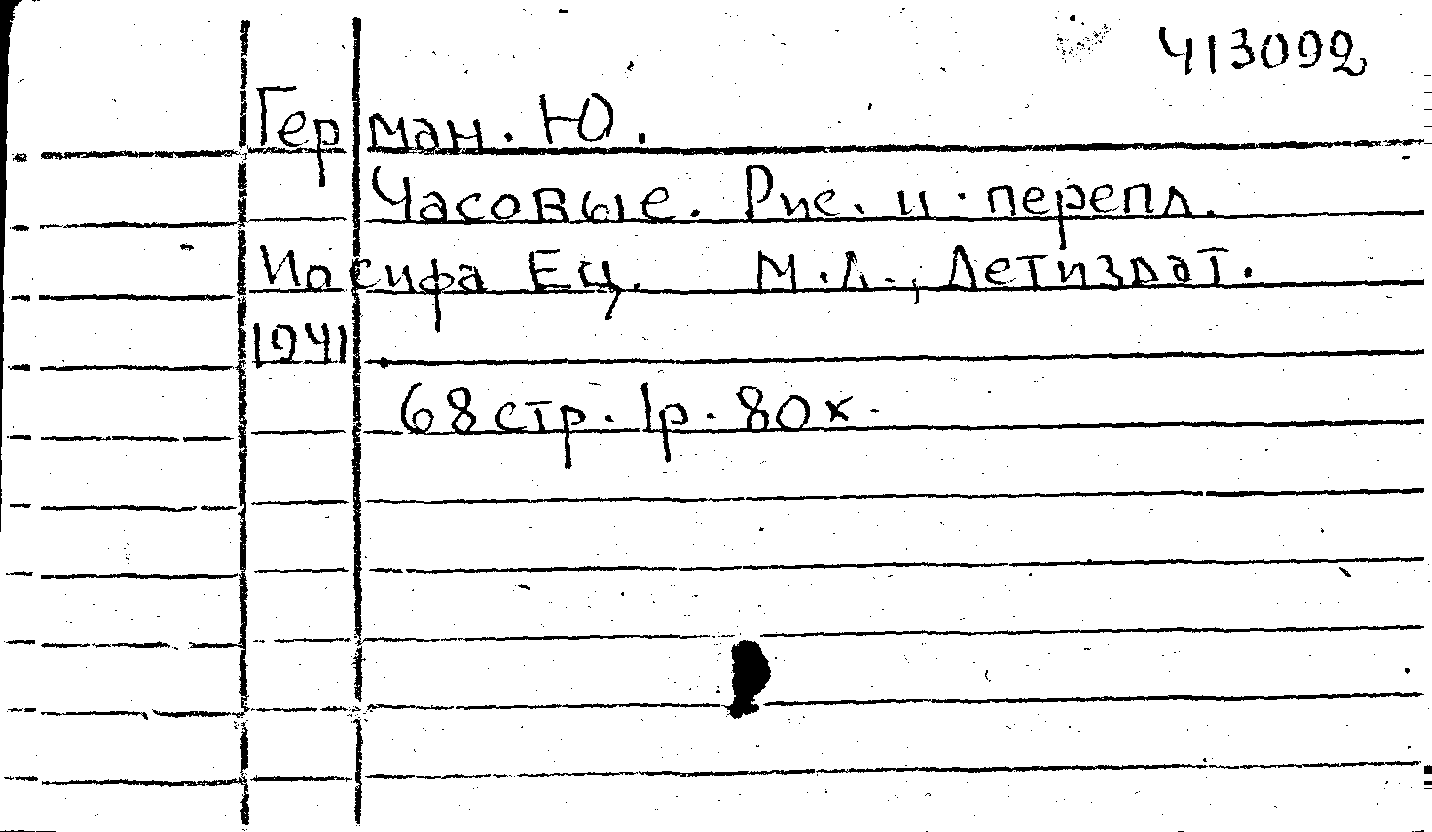 413092
Герман. Ю.
Часовые. Рис. и. перепл.
Иосифа Ец. М.Л., Детиздат.
1941.
68 стр. 1р. 80к.